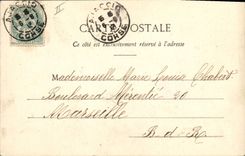 AJACCIO
CORSE
AJACCIO
CORSE
CARTE POSTALE
Ce côté est exclusivement réservé à l'adresse
Mademoiselle Marie Louise Chabert
Boulevard Mérentié 20
Marseille
B-d-R